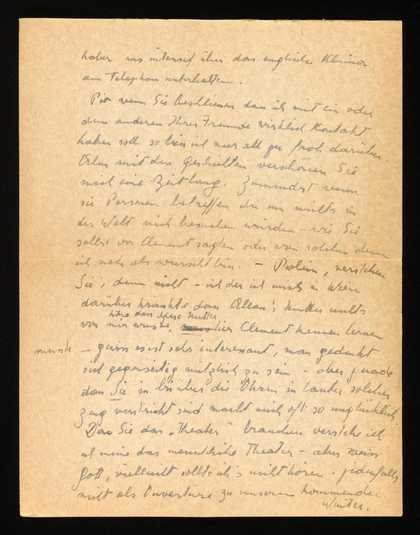 haben uns intensiv über das englische Klima
am Telephon unterhalten.
Pir wenn Sie beschliessen dass ich mit ein oder
dem anderen Ihrer Freunde wirklich Kontakt
haben soll so bin ich nur all zu froh darüber
mit den Geschichten verschonen Sie
mich eine Zeitlang. Zumindest wenn
sie Personen betreffen die mir nichts in
der Welt mich besuchen würden - wie Sie
selbst von Clement sagten oder von solchen denen
ich mehr als wurscht bin. - verstehen
Sie, denn nicht - ist der ich mich in
darüber kränkte dass Allan's Mutter nichts
wäre dass diese Mutter
von mir wusste, hier Clement kennen lernen
musste
- gewiss es ist sehr interessant, man gedenkt
sich gegenseitig nützlich zu sein - aber gerade
dass Sie in bis über die Ohren in lauter solches
Zeug verstrickt sind macht mich oft so unglücklich.
Dass Sie das "Theater" brauchen verstehe ich
ich meine das menschliche Theater - aber weiss
Gott, vielleicht sollte ich's nicht hören - jedenfalls
nicht als Ouverture zu unserem kommenden
Winter.